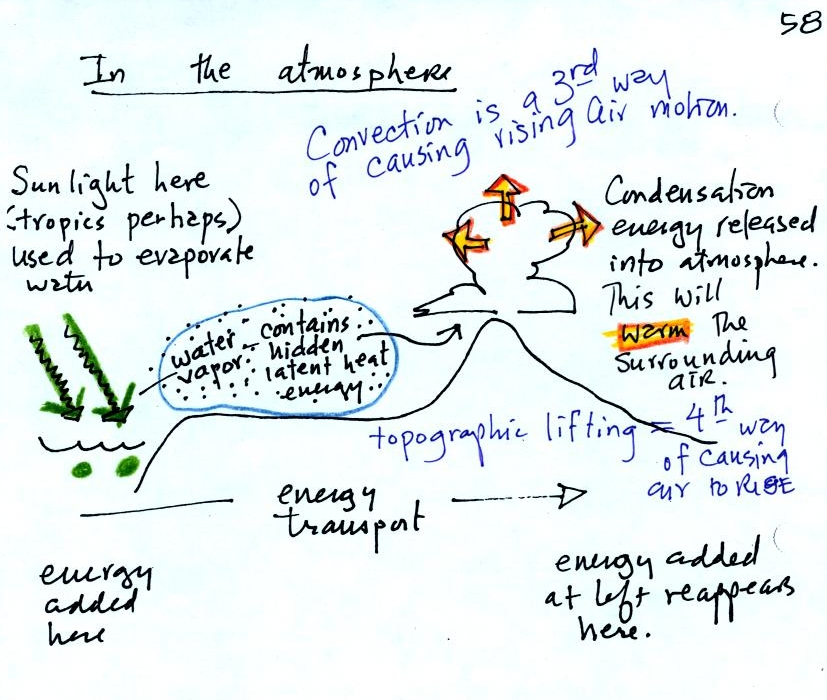 58
In the atmosphere
Convection is a 3rd way
of causing rising air motion.
Sunlight here
(tropics perhaps)
used to evaporate
water
Condensation
energy released
into atmosphere.
This will
warm the
surrounding
air.
water vapor - contains
hidden
latent heat
energy
topographic lifting = 4th way
of causing
air to RISE
energy
transport
energy
added
here
energy added
at left reappears
here.